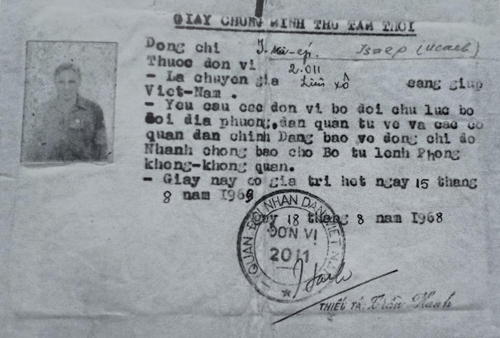 GIAY CHUNG MINH THU TAM THOI
Dong chi I-xa-ép Isaep (Исаев)
Thuoc don vi 2.011
- La chuyen gia Liên xô sang giup
Viet-Nam.
- Yeu cau cac don vi bo doi chu luc bo
doi dia phuong, dan quan tu ve va cac co
quan dan chinh Dang bao ve dong chi do
Nhanh chong bao cho Bo tu lenh Phong
khong-khong quan.
- Giay nay co gia tri het ngay 15 thang
8 nam 1969
Ngay 18 thang 8 nam 1968
QUÂN ĐỘI NHAN DAN VIET NAM
ĐƠN VỊ
2011
THIẾU TÁ: Trần Hanh